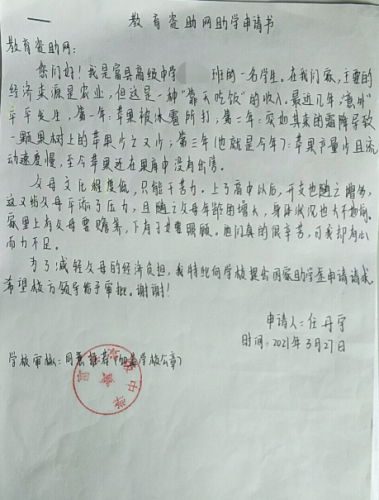 教育资助网助学申请书
教育资助网：
您们好！我是富县高级中学 班的一名学生。在我们家，主要的
经济来源是农业，但这是一种“靠天吃饭”的收入。最近几年，“意外”
年年发生，第一年：苹果被冰雹所打；第二年：突如其来的霜降导致
一颗果树上的苹果少之又少；第三年（也就是今年）：苹果产量少且流
动速度慢，至今苹果还在果库中没有出售。
父母文化程度低，只能干苦力。上了高中以后，开支也随之增多，
这又给父母平添了压力，且随之父母年龄的增大，身体状况也大不如前。
家里上有父母要赡养，下有子女要照顾。他们真的很辛苦，可我却有心
而力不足。
为了减轻父母的经济负担，我特地向学校提出国家助学金申请请求，
希望校方领导给予审批。谢谢！
申请人：任丹宁
时间：2021年3月27日
学校审核：同意推荐（加盖学校公章）